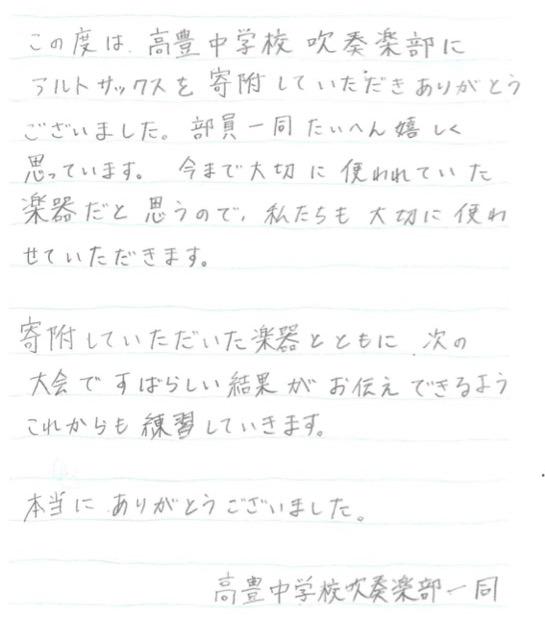 この度は、高豊中学校 吹奏楽部に
アルトサックスを寄附していただきありがとう
ございました。部員一同たいへん嬉しく
思っています。 今まで大切に使われていた
楽器だと思うので、私たちも大切に使わ
せていただきます。
寄附していただいた楽器とともに、次の
大会ですばらしい結果がお伝えできるよう
これからも練習していきます。
本当にありがとうございました。
高豊中学校吹奏楽部一同